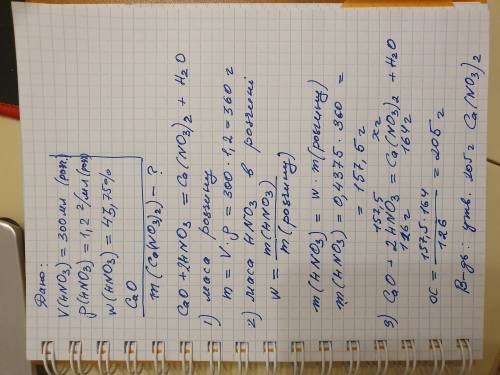 Дано:
V(HNO3) = 300 мл (роз.)
ρ(HNO3) = 1,2 г/мл (роз)
w(HNO3) = 43,75%
CaO
m(Ca(NO3)2) - ?
CaO + 2HNO3 = Ca(NO3)2 + H2O
1) маса розчину
m = V·ρ = 300 · 1,2 = 360 г
2) маса HNO3 в розчині
w = m(HNO3) / m(розчину)
m(HNO3) = w · m(розчину)
m(HNO3) = 0,4375 · 360 =
= 157,5 г
157,5 xг
3) CaO + 2HNO3 = Ca(NO3)2 + H2O
126 г 164 г
x = 157,5·164 / 126 = 205 г
В-дь: утв. 205 г Ca(NO3)2